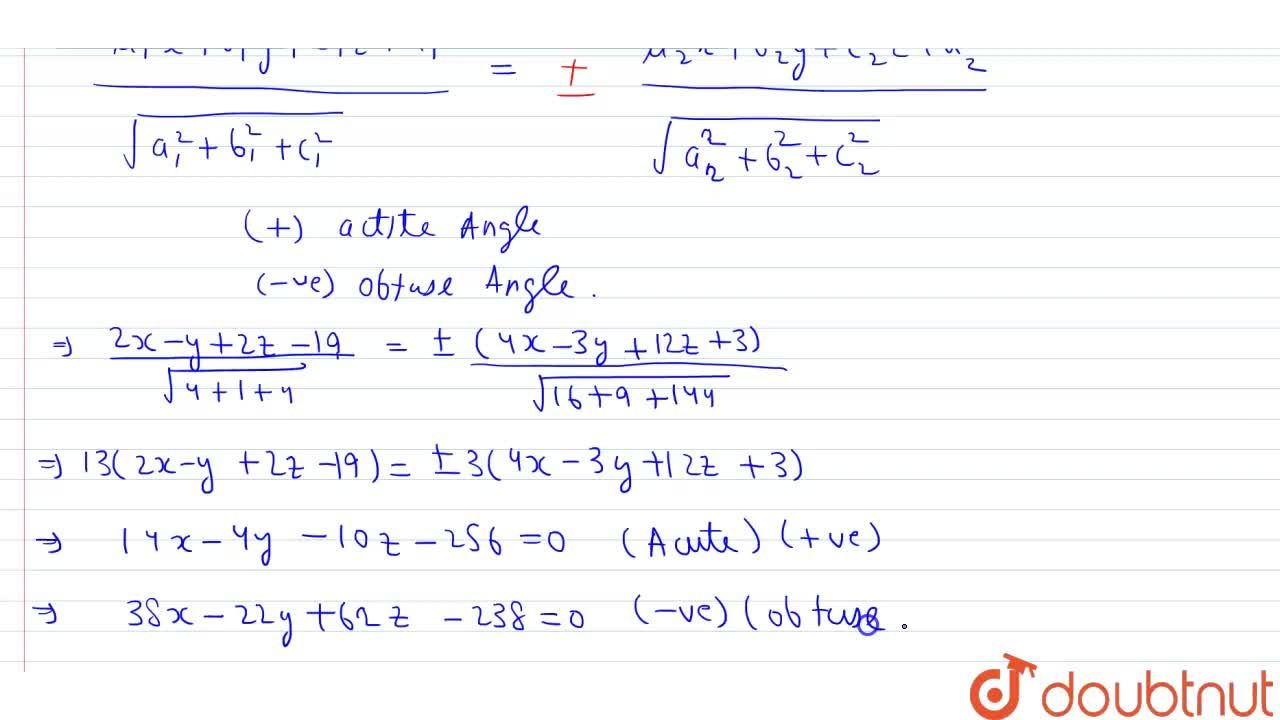 = ±
√a₁² + b₁² + c₁² √a₂² + b₂² + c₂²
(+) acute Angle
(-ve) obtuse Angle.
⇒ 2x - y + 2z - 19 = ± (4x - 3y + 12z + 3)
√4 + 1 + 4 √16 + 9 + 144
⇒ 13(2x - y + 2z - 19) = ± 3(4x - 3y + 12z + 3)
⇒ 14x - 4y - 10z - 256 = 0 (Acute) (+ve)
⇒ 38x - 22y + 62z - 238 = 0 (-ve) (obtuse .
doubtnut